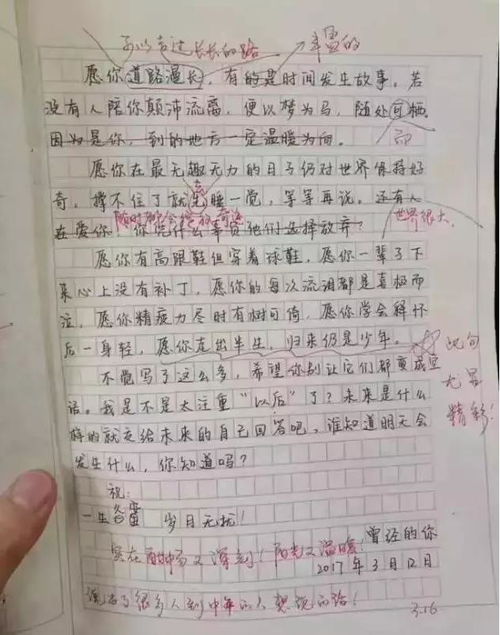 可以走过长长的路 丰富的
愿你道路漫长，有的是时间发生故事。若
没有人陪你颠沛流离，便以梦为马，随处可栖。
因为是你，到的地方一定温暖为向。
愿你在最无趣无力的日子仍对世界保持好
奇，撑不住了就去睡一觉，等等再说。还有人
在爱你，你凭什么辜负他们选择放弃？
世界很大
愿你有高跟鞋但穿着球鞋，愿你一辈子下
来心上没有补丁，愿你的每次流泪都是喜极而
泣，愿你精疲力尽时有树可倚，愿你学会释怀
后一身轻，愿你走出半生，归来仍是少年。
此句
尤显
精彩！
不觉写了这么多，希望你别让它们都变成空
话。我是不是太注重“以后”了？未来是什么
样的就交给未来的自己回答吧，谁知道明天会
发生什么，你知道吗？
祝：
一生合宜 岁月无忧！
实在酣畅又深刻！阳光又温暖！
曾经的你
2017年3月12日
很多人到中年的人想说的话！
3.16